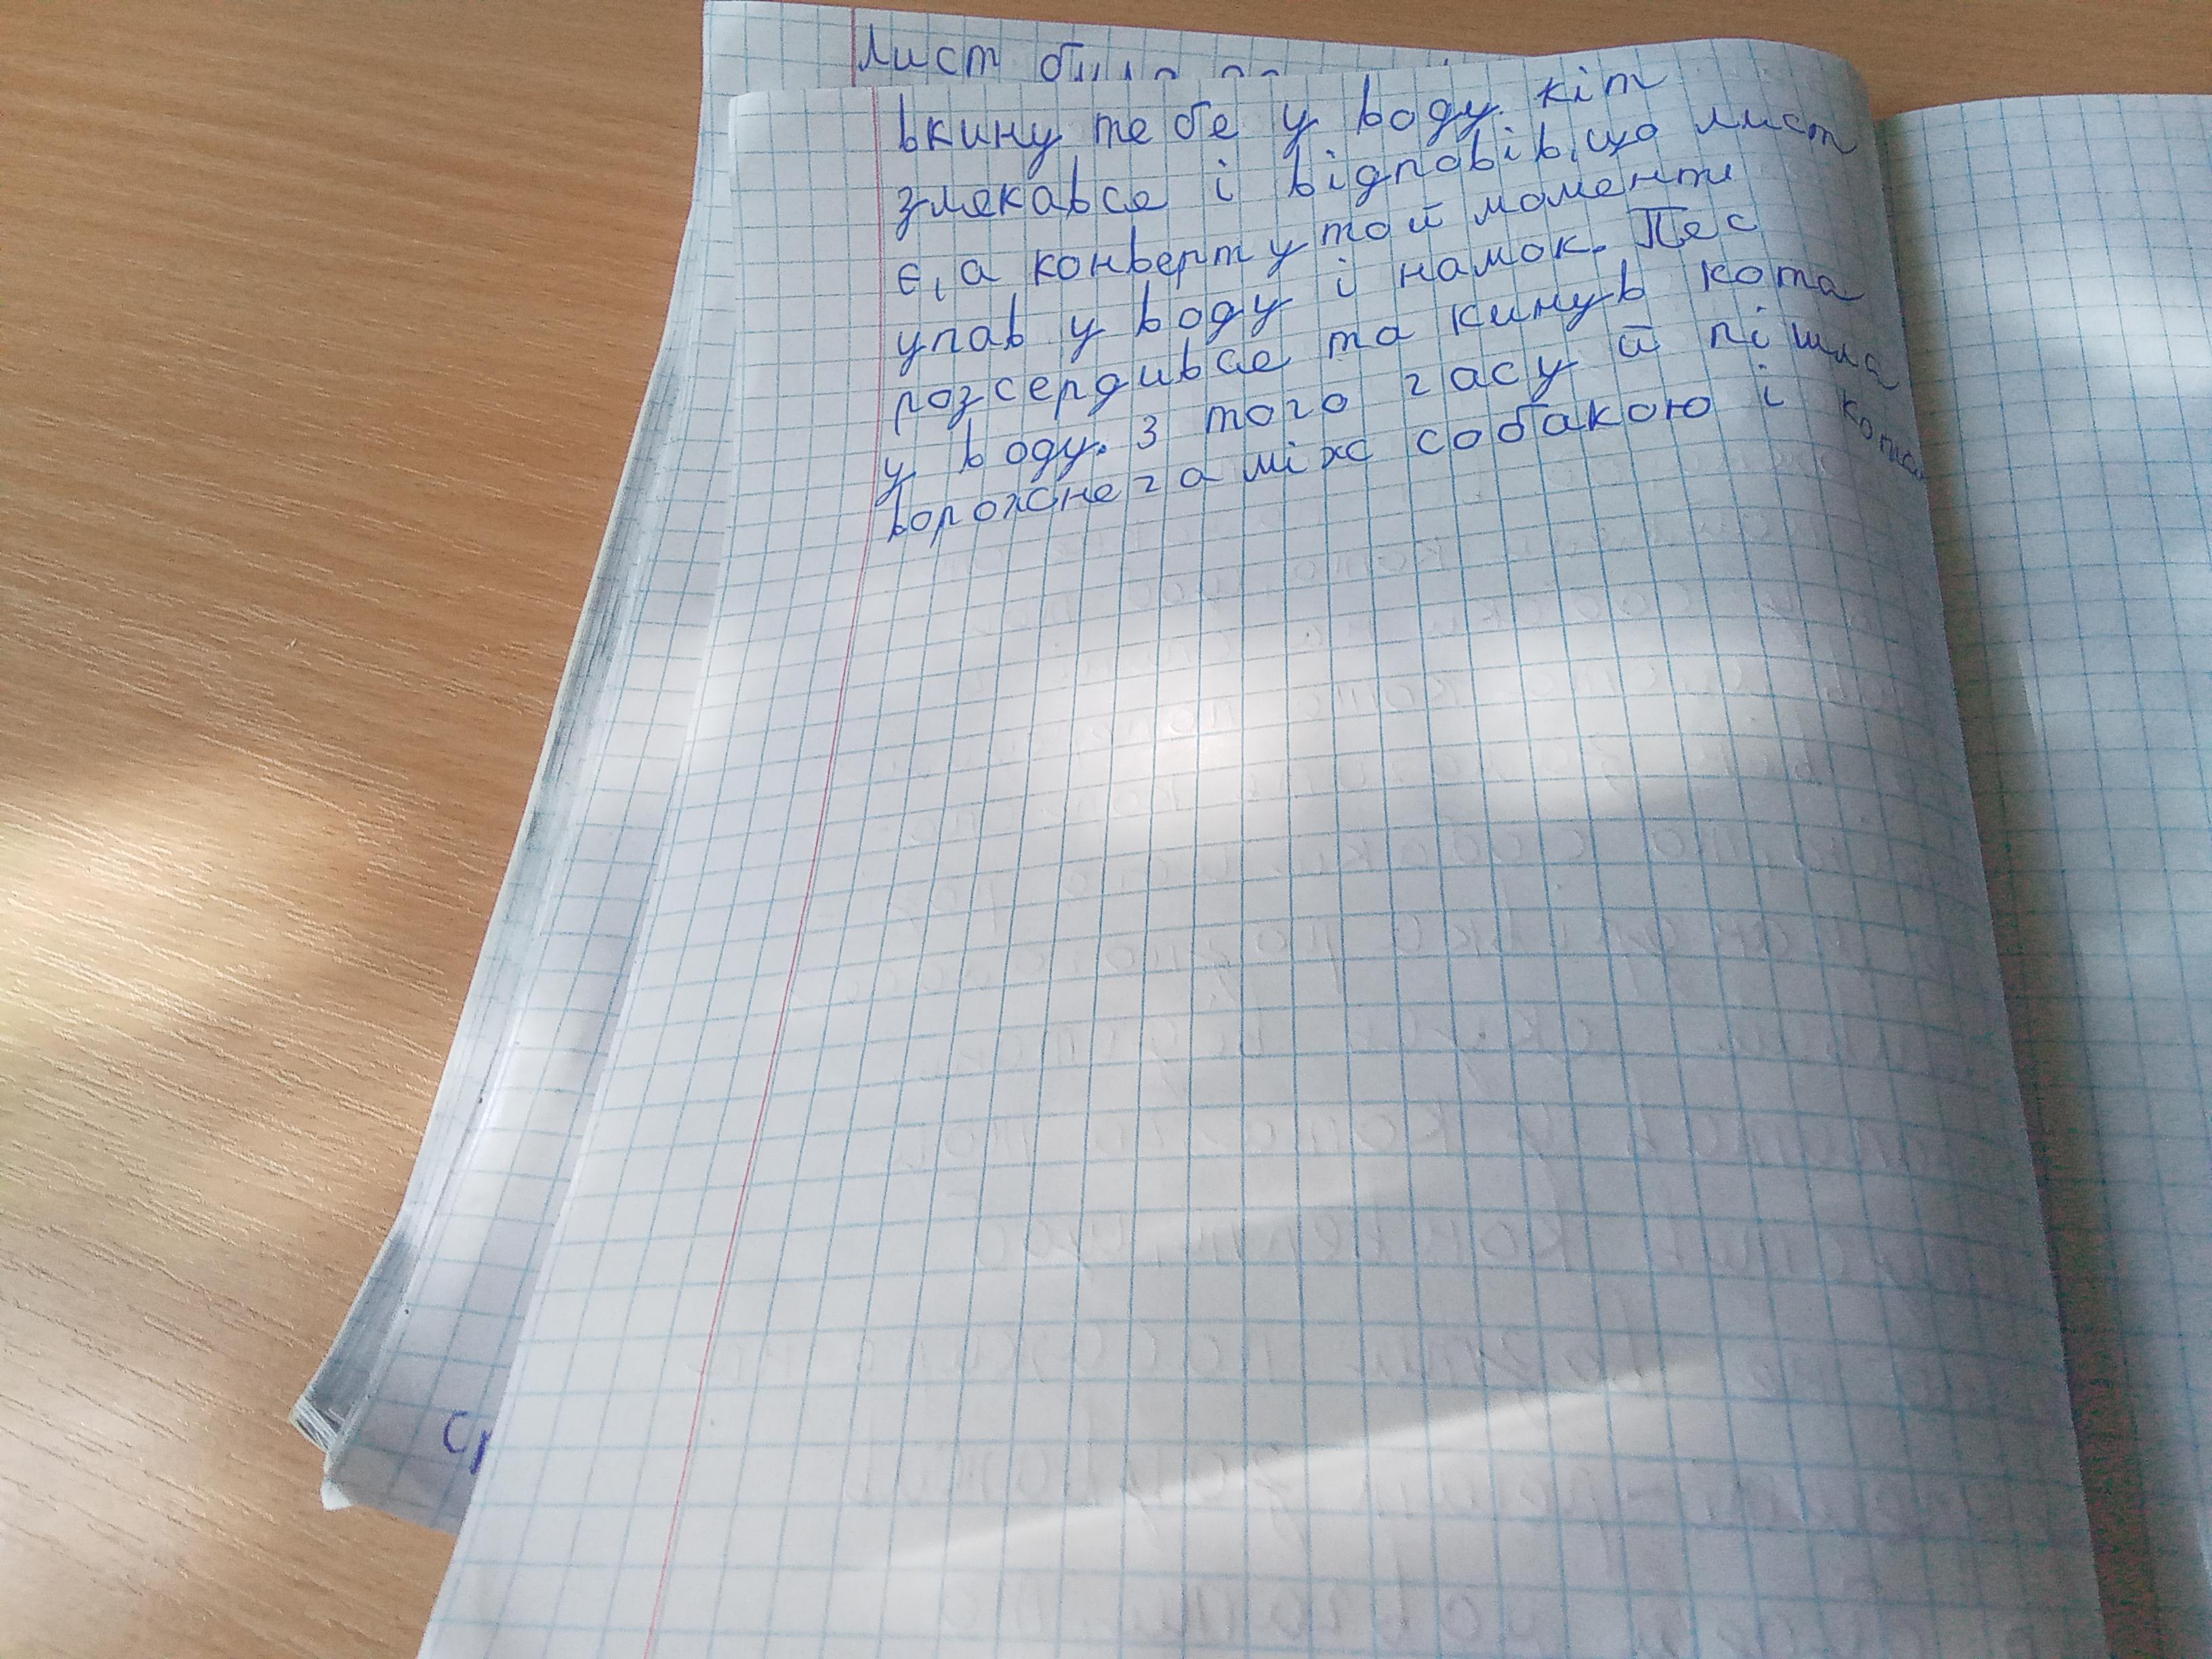 лист
вкину тебе у воду. кіт
злякався і відповів, що лист
є, а конверт у той моменти
упав у воду і намок. Пес
розсердився та кинув кота
у воду. З того часу й пішла
ворожнеча між собакою і котом